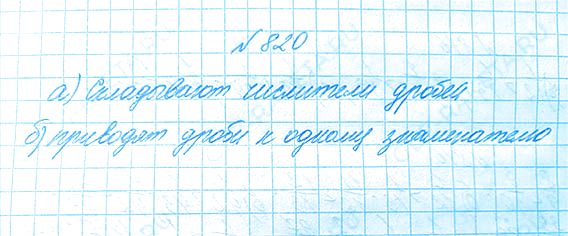 № 820
а) Складывают числители дробей
б) приводят дроби к одному знаменателю